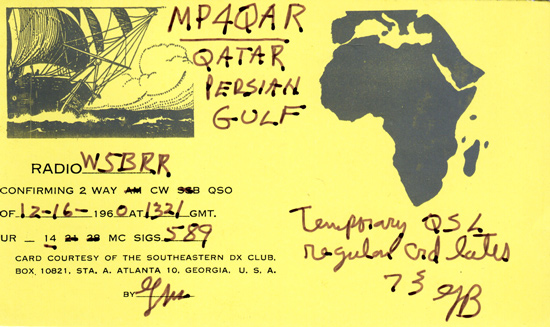 MP4QAR
QATAR
PERSIAN
GULF
RADIO W5BRR
CONFIRMING 2 WAY AM CW SSB QSO
OF 12-16- 1960 AT 1321 GMT.
UR - 14 21 28 MC SIGS 589
CARD COURTESY OF THE SOUTHEASTERN DX CLUB,
BOX 10821, STA. A. ATLANTA 10, GEORGIA, U. S. A.
BY
Temporary QSL
regular crd later
73